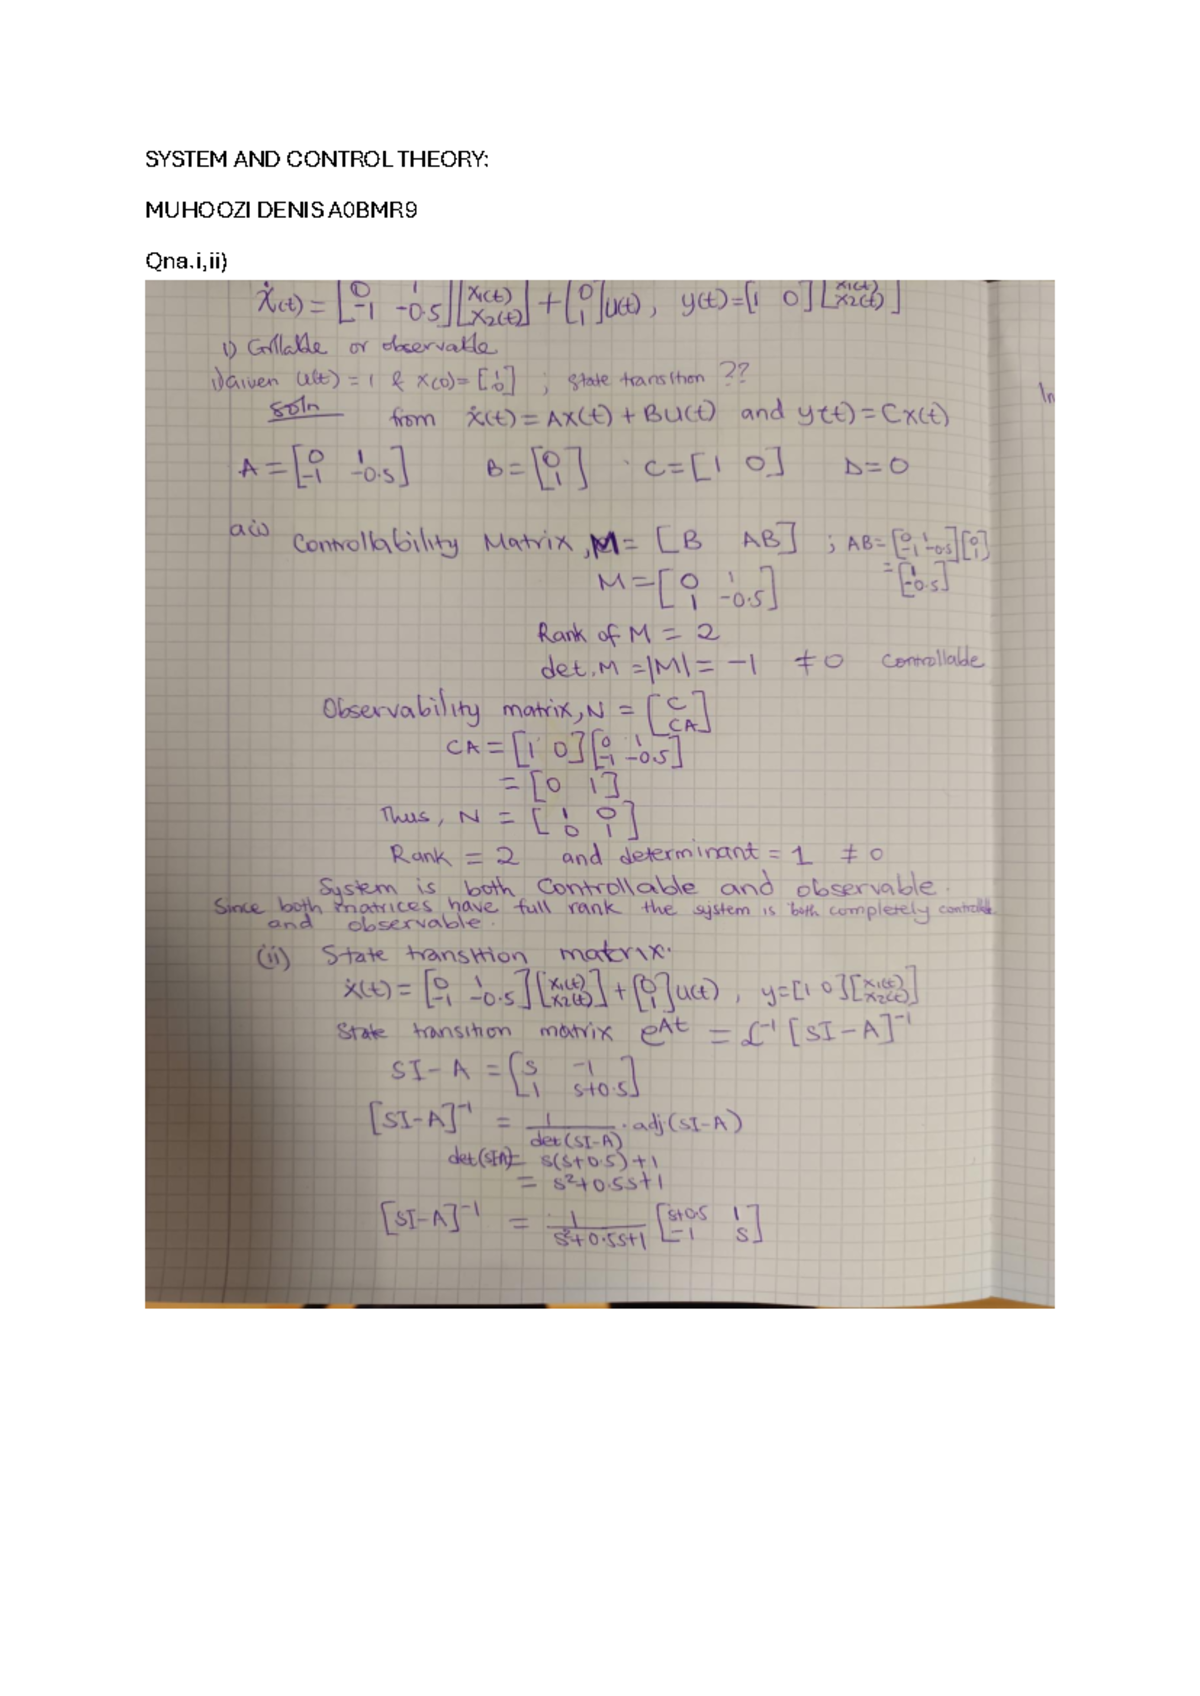 SYSTEM AND CONTROL THEORY:
MUHOOZI DENIS A0BMR9
Qna.i,ii)
ẋ(t) = [0 1; -1 -0.5][x1(t); x2(t)] + [0; 1]u(t), y(t)=[1 0][x1(t); x2(t)]
i) or observable
Given u(t) = 1 & x(0)= [1; 0] ; state transition ??
soln from ẋ(t) = Ax(t) + Bu(t) and y(t) = Cx(t)
A = [0 1; -1 -0.5] B = [0; 1] C = [1 0] D = 0
a(i) Controllability Matrix, M = [B AB] ; AB = [0 1; -1 -0.5][0; 1]
= [1; -0.5]
M = [0 1; 1 -0.5]
Rank of M = 2
det.M = |M| = -1 ≠ 0 Controllable
Observability matrix, N = [C; CA]
CA = [1 0][0 1; -1 -0.5]
= [0 1]
Thus, N = [1 0; 0 1]
Rank = 2 and determinant = 1 ≠ 0
System is both Controllable and observable.
Since both matrices have full rank the system is both completely
and observable.
(ii) State transition matrix.
ẋ(t) = [0 1; -1 -0.5][x1(t); x2(t)] + [0; 1]u(t), y=[1 0][x1(t); x2(t)]
State transition matrix e^At = ℒ⁻¹[SI-A]⁻¹
SI-A = [S -1; 1 S+0.5]
[SI-A]⁻¹ = 1/det(SI-A) · adj(SI-A)
det(SI-A)= S(S+0.5)+1
= S²+0.5S+1
[SI-A]⁻¹ = 1/(S²+0.5S+1) [S+0.5 1; -1 S]